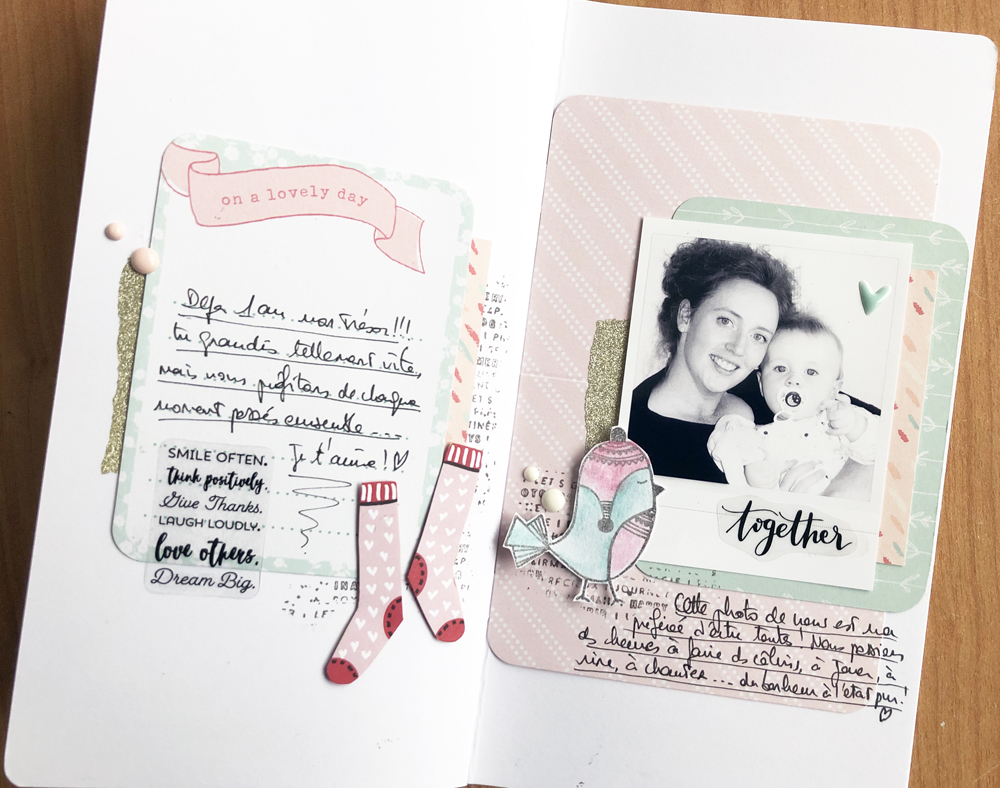 on a lovely day
Deja 1 an mon Trésor!!!
tu grandis tellement vite,
mais nous profitons de chaque
moment passés ensemble ....
Je t'aime! ♡
SMILE OFTEN.
think positively.
Give Thanks.
LAUGH LOUDLY.
love others.
Dream Big.
together
Cette photo de nous est ma
préférée d'entre toutes! Nous passions
ds heures à faire ds câlins, à jouer, à
rire, à chanter... du bonheur à l'état pur!
♡